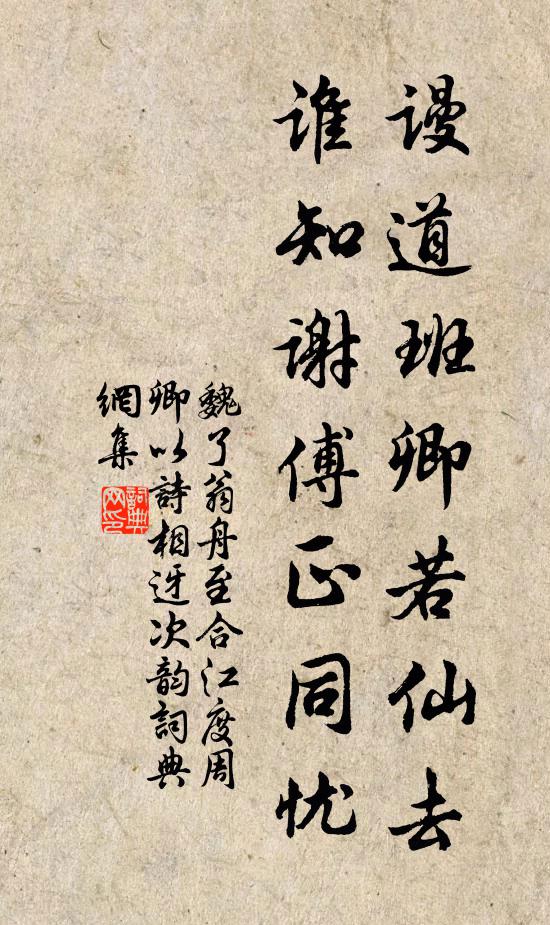 谩道班卿若仙去
谁知谢傅正同忧
魏了翁舟至合江度周
卿以诗相迓次韵词典
网集
词典
网印